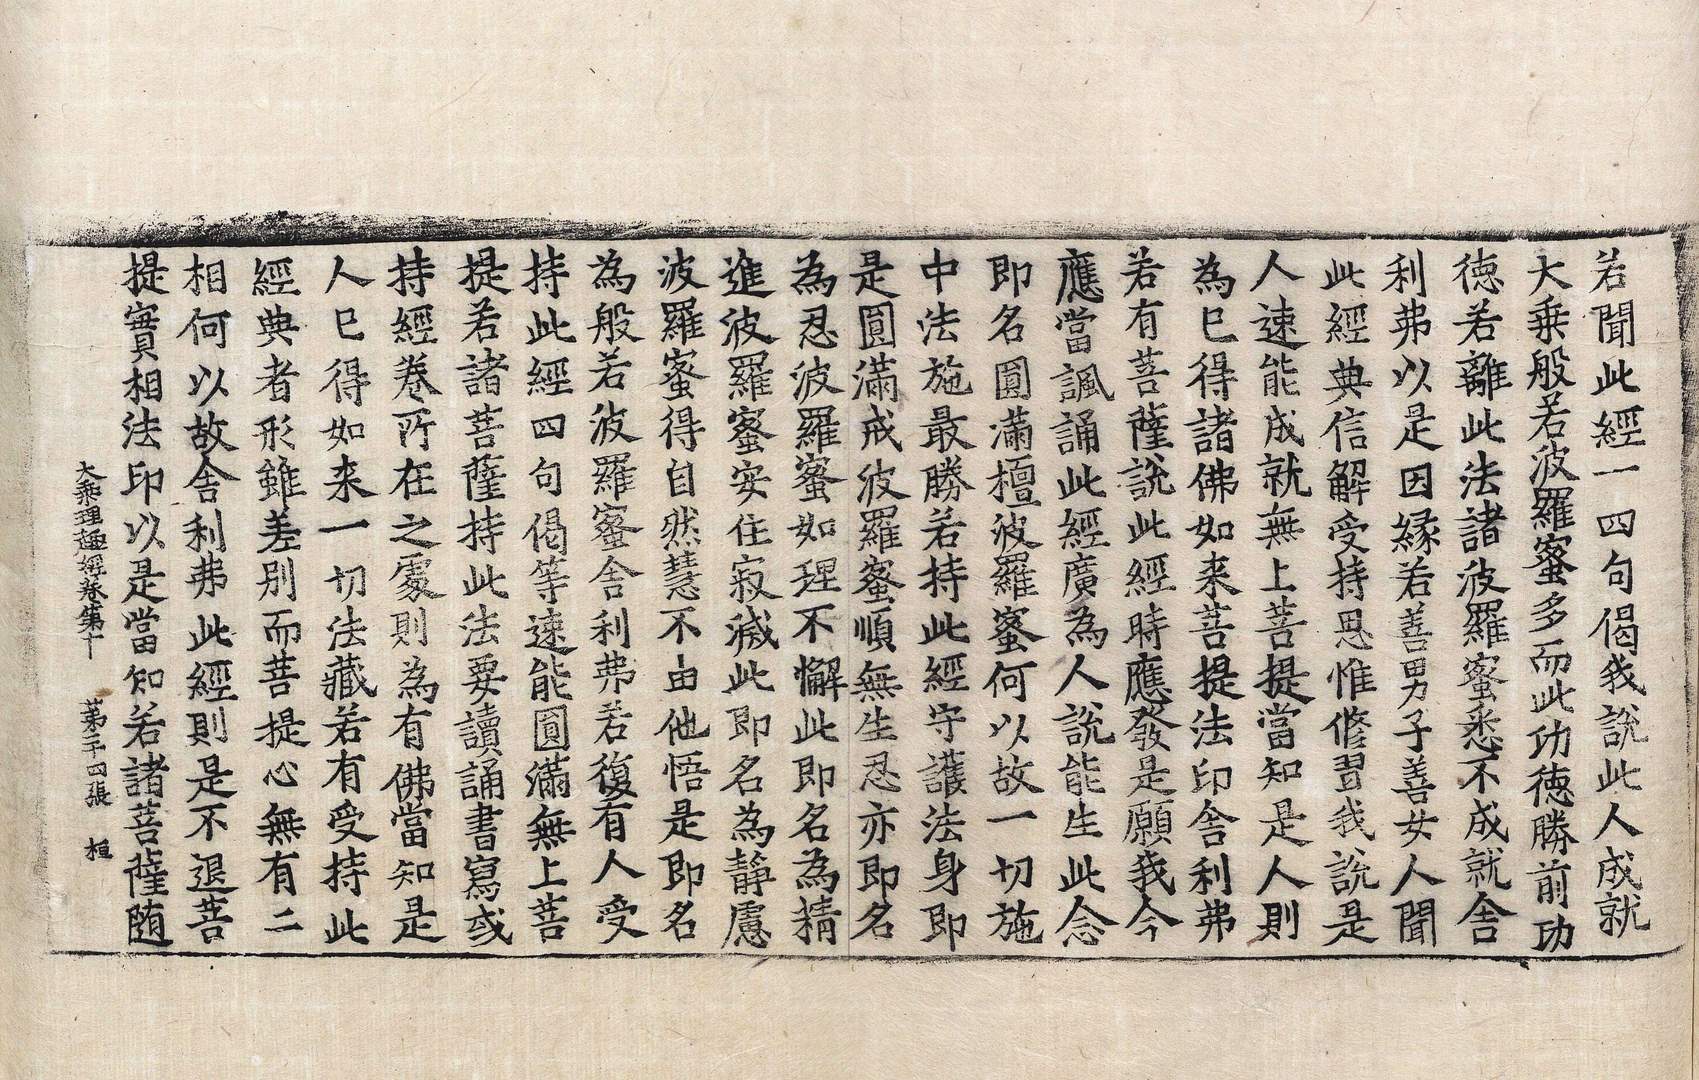 若聞此經一四句偈我說此人成就
大乗般若波羅蜜多而此功徳勝前功
徳若離此法諸波羅蜜悉不成就舍
利弗以是因縁若善男子善女人聞
此經典信解受持思惟修習我說是
人速能成就無上菩提當知是人則
為已得諸佛如来菩提法印舍利弗
若有菩薩說此經時應發是願我今
應當諷誦此經廣為人說能生此念
即名圓滿檀波羅蜜何以故一切施
中法施最勝若持此經守護法身即
是圓滿戒波羅蜜順無生忍亦即名
為忍波羅蜜如理不懈此即名為精
進波羅蜜安住寂滅此即名為静慮
波羅蜜得自然慧不由他悟是即名
為般若波羅蜜舍利弗若復有人受
持此經四句偈等速能圓滿無上菩
提若諸菩薩持此法要讀誦書寫或
持經卷所在之處則為有佛當知是
人已得如来一切法藏若有受持此
經典者形雖差別而菩提心無有二
相何以故舍利弗此經則是不退菩
提實相法印以是當知若諸菩薩随
大乗理趣經卷第十　第二十四張　桓